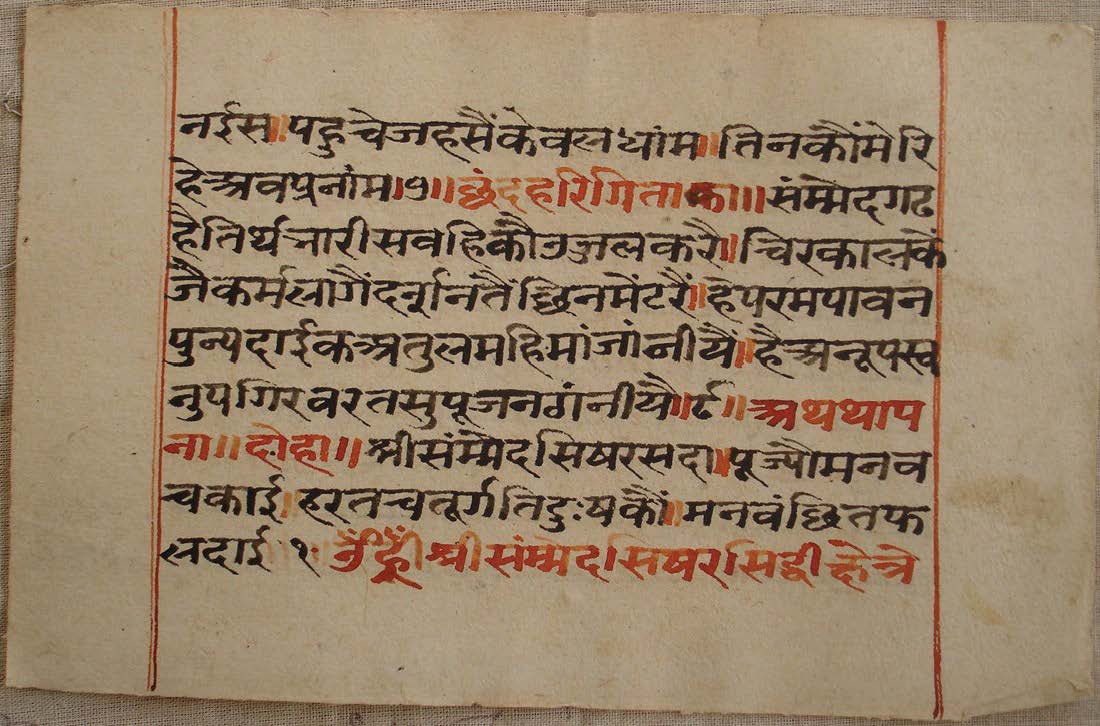 नईस॥पहुचेजहसैंकेवलधांम॥तिनकौंमेरि
हेअवप्रनांम॥७॥छंदहरिगिताका॥॥संम्मेदगढ
हैतिर्थभारीसवहिकौउजलकरै॥चिरकालके
जैकर्मलागैंदर्शनतैंछिनमेंटरैं॥हेपरमपावन
पुन्यदाईकअतुलमहिमांजांनीयैं॥हैअनूपस्व
नुपगिरवरतसुपूजनठांनीयै॥८॥अथथाप
ना॥॥दोहा॥॥श्रीसंम्मेदसिषरसदा॥पूज्यौमनव
चकाई॥हरतचतूर्गतिदुःषकौं॥मनवंछितफ
लदाई १ ॐह्रीँश्रीसंम्मेदसिषरसिद्धीक्षेत्रे